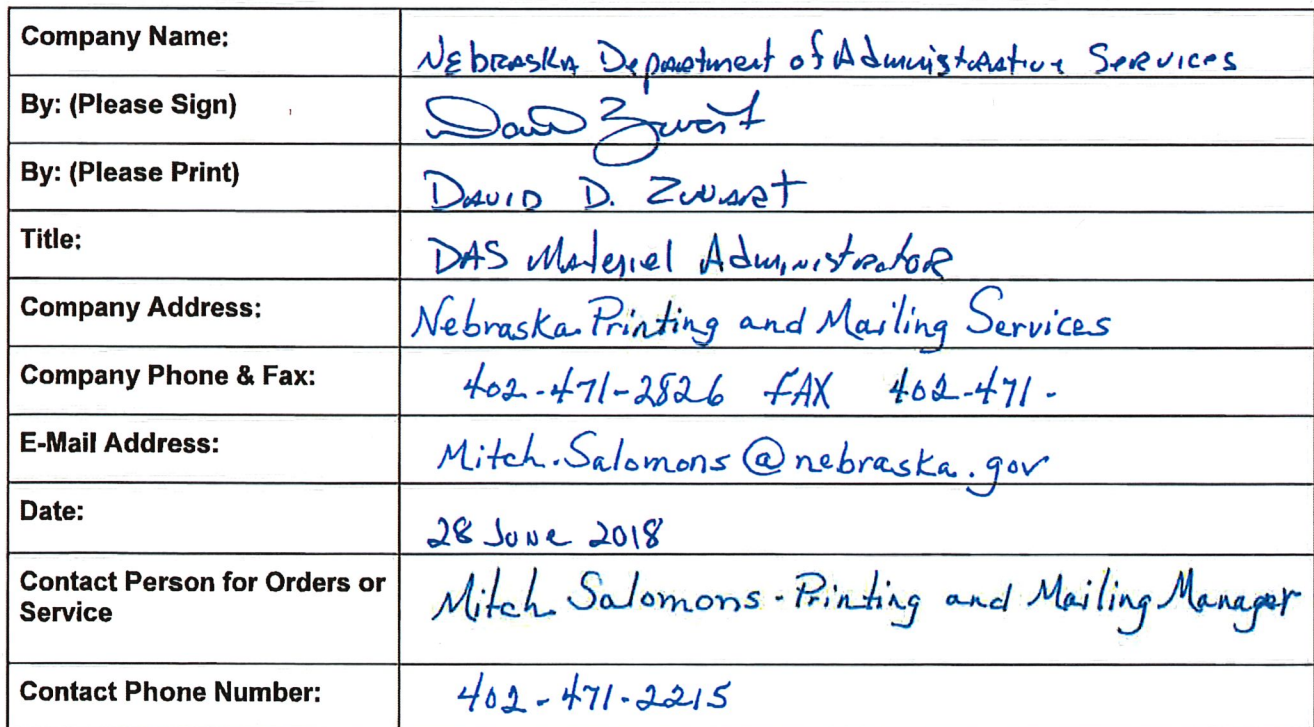 Company Name: Nebraska Department of Administrative Services
By: (Please Sign) David Zwart
By: (Please Print) David D. Zwart
Title: DAS Materiel Administrator
Company Address: Nebraska Printing and Mailing Services
Company Phone & Fax: 402-471-2826 FAX 402-471-
E-Mail Address: Mitch.Salomons@nebraska.gov
Date: 28 June 2018
Contact Person for Orders or
Service Mitch Salomons - Printing and Mailing Manager
Contact Phone Number: 402-471-2215